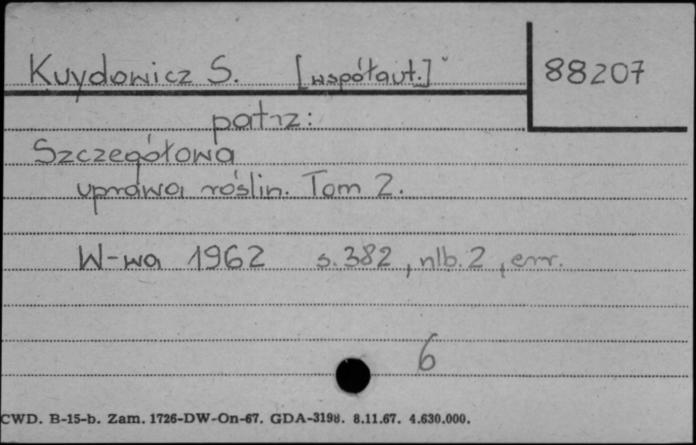 Kuydowicz S. [współaut.] 88207
patrz:
Szczegółowa
uprawa roślin. Tom 2.
W-wa 1962 s. 382, nlb. 2, err.
6
CWD. B-15-b. Zam. 1726-DW-On-67. GDA-3198. 8.11.67. 4.630.000.